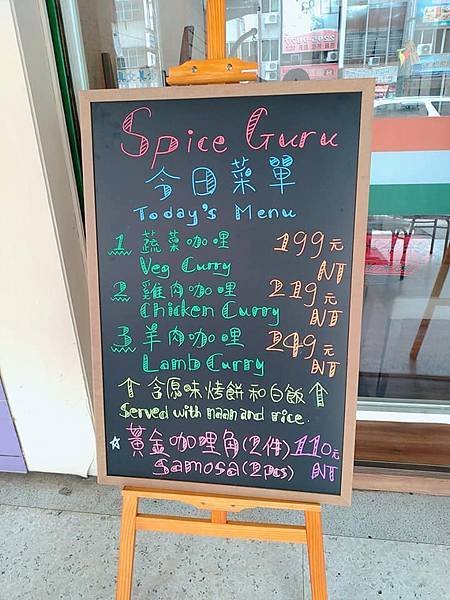 Spice Guru
今日菜單
Today's Menu
1 蔬菜咖哩 199元
Veg Curry NT
2 雞肉咖哩 219元
Chicken Curry NT
3 羊肉咖哩 249元
Lamb Curry NT
↑ 含原味烤餅和白飯 ↑
Served with naan and rice.
☆ 黃金咖哩角(2件) 110元
Samosa (2pcs) NT